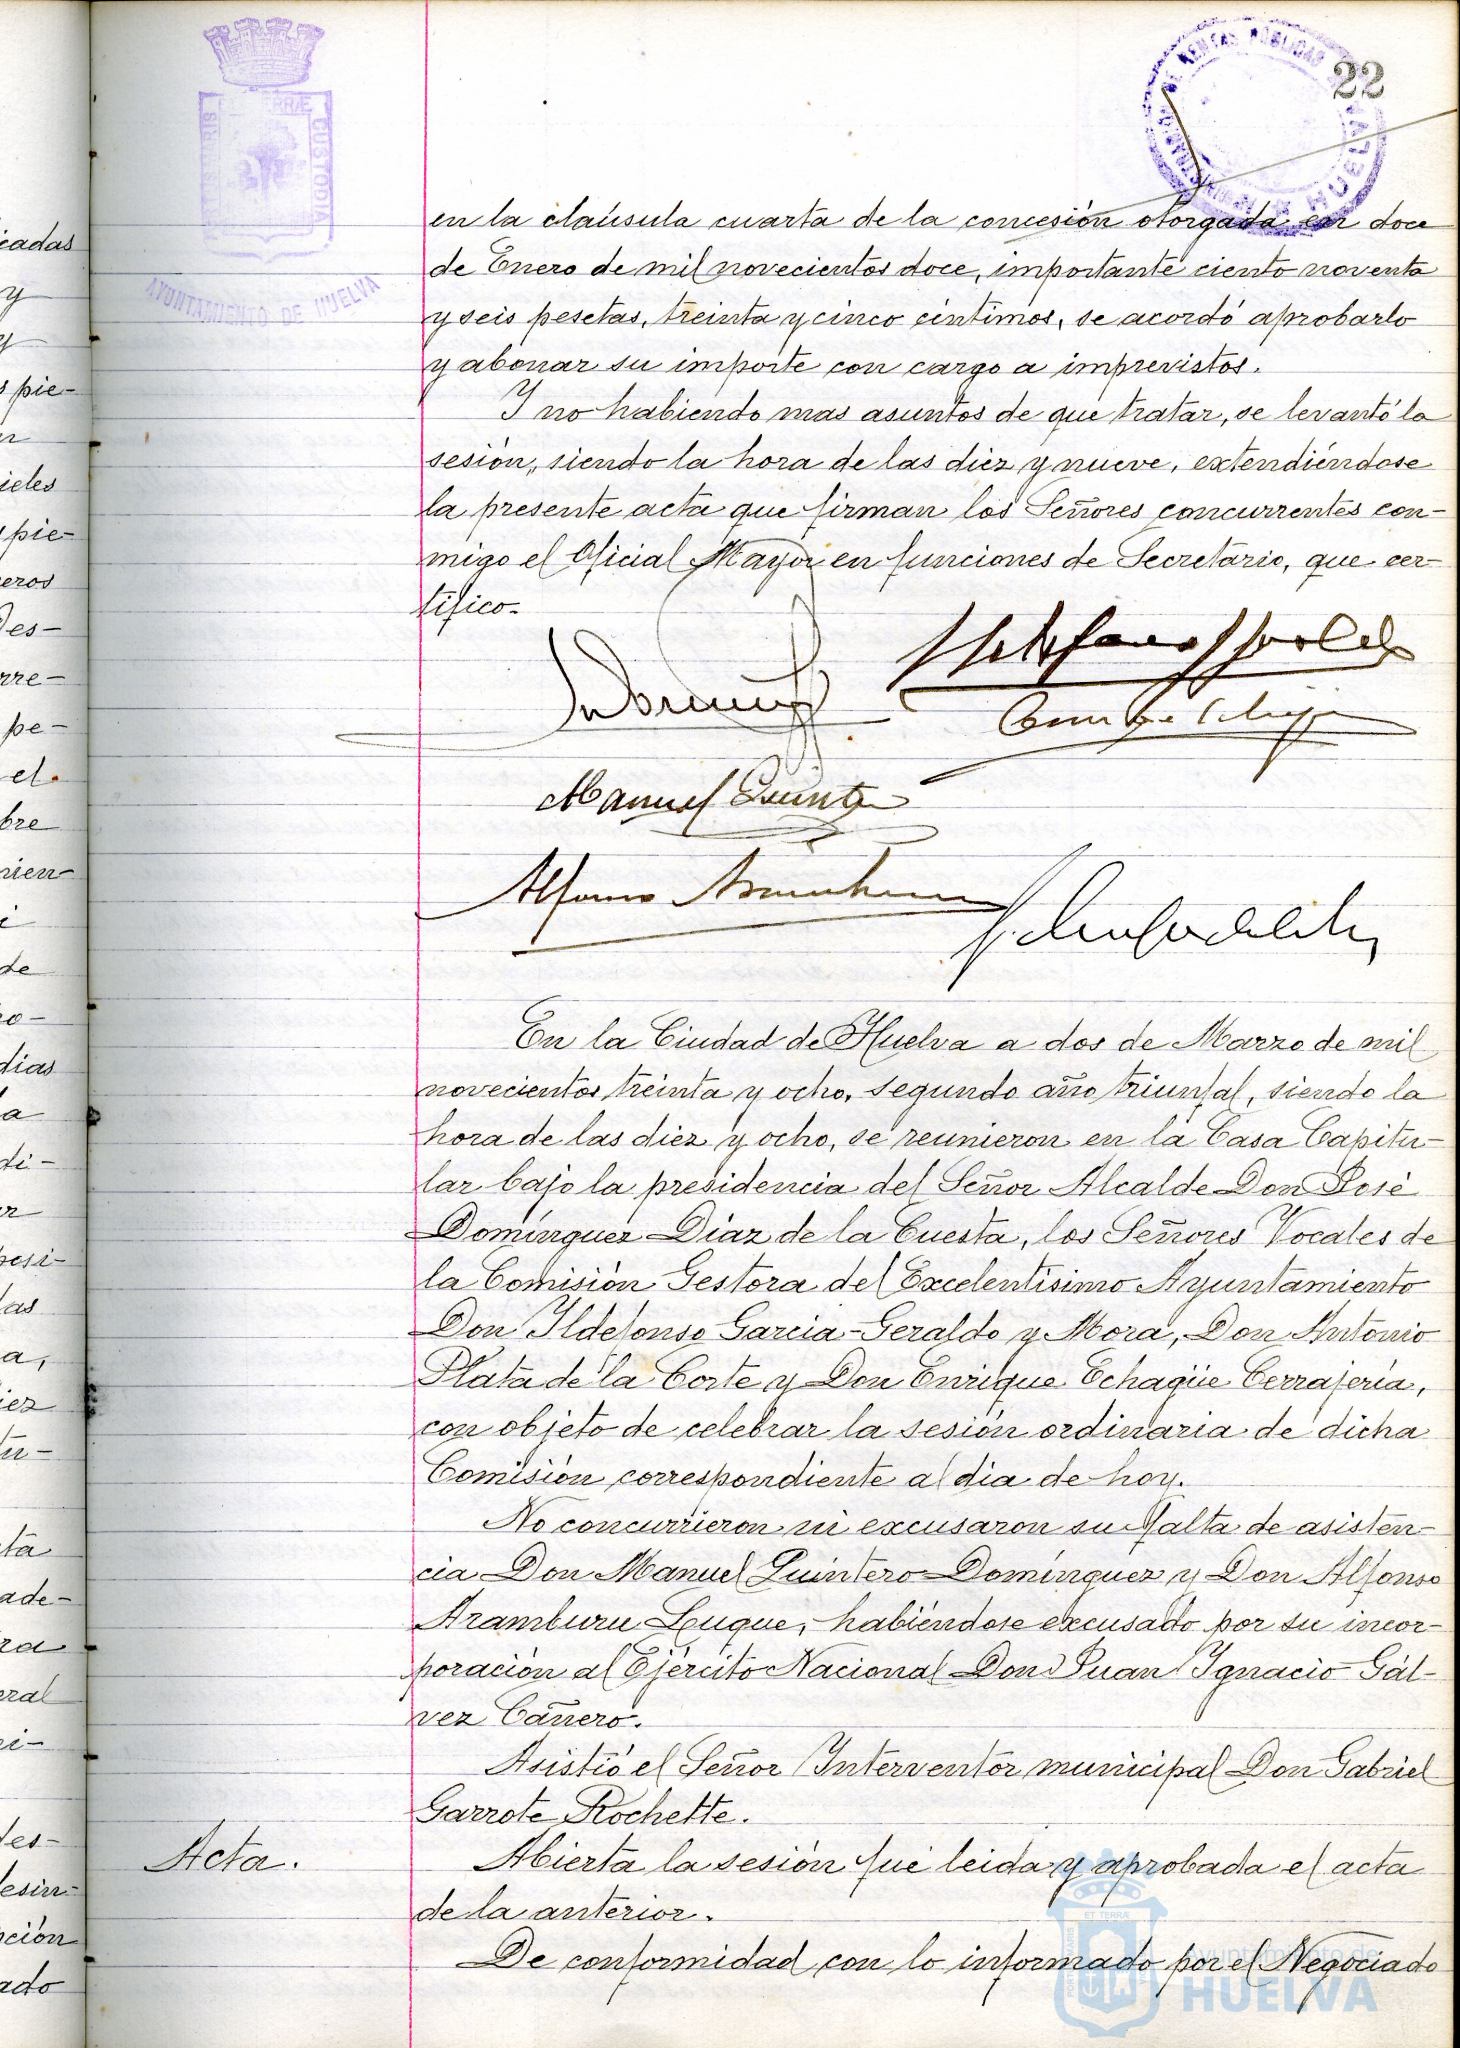 22
AYUNTAMIENTO DE HUELVA
CUSTODIA
RENTAS PUBLICAS
HUELVA
en la claúsula cuarta de la concesión otorgada en doce
de Enero de mil novecientos doce, importante ciento noventa
y seis pesetas, treinta y cinco céntimos, se acordó aprobarlo
y abonar su importe con cargo a imprevistos.
Y no habiendo mas asuntos de que tratar, se levantó la
sesión, siendo la hora de las diez y nueve, extendiéndose
la presente acta que firman los Señores concurrentes con-
migo el Oficial Mayor en funciones de Secretario, que cer-
tifico.
Manuel Quintero
Alfonso Aramburu
En la Ciudad de Huelva a dos de Marzo de mil
novecientos treinta y ocho, segundo año triunfal, siendo la
hora de las diez y ocho, se reunieron en la Casa Capitu-
lar bajo la presidencia del Señor Alcalde Don José
Domínguez Díaz de la Cuesta, los Señores Vocales de
la Comisión Gestora del Excelentísimo Ayuntamiento
Don Ildefonso Garcia-Geraldo y Mora, Don Antonio
Plata de la Corte y Don Enrique Echagüe Cerrajería,
con objeto de celebrar la sesión ordinaria de dicha
Comisión correspondiente al dia de hoy.
No concurrieron ni excusaron su falta de asisten-
cia Don Manuel Quintero Domínguez y Don Alfonso
Aramburu Luque, habiéndose excusado por su incor-
poración al Ejército Nacional Don Juan Ignacio Gál-
vez Cañero.
Asistió el Señor Interventor municipal Don Gabriel
Garrote Rochette.
Acta.
Abierta la sesión fué leida y aprobada el acta
de la anterior.
De conformidad con lo informado por el Negociado
Ayuntamiento de
HUELVA